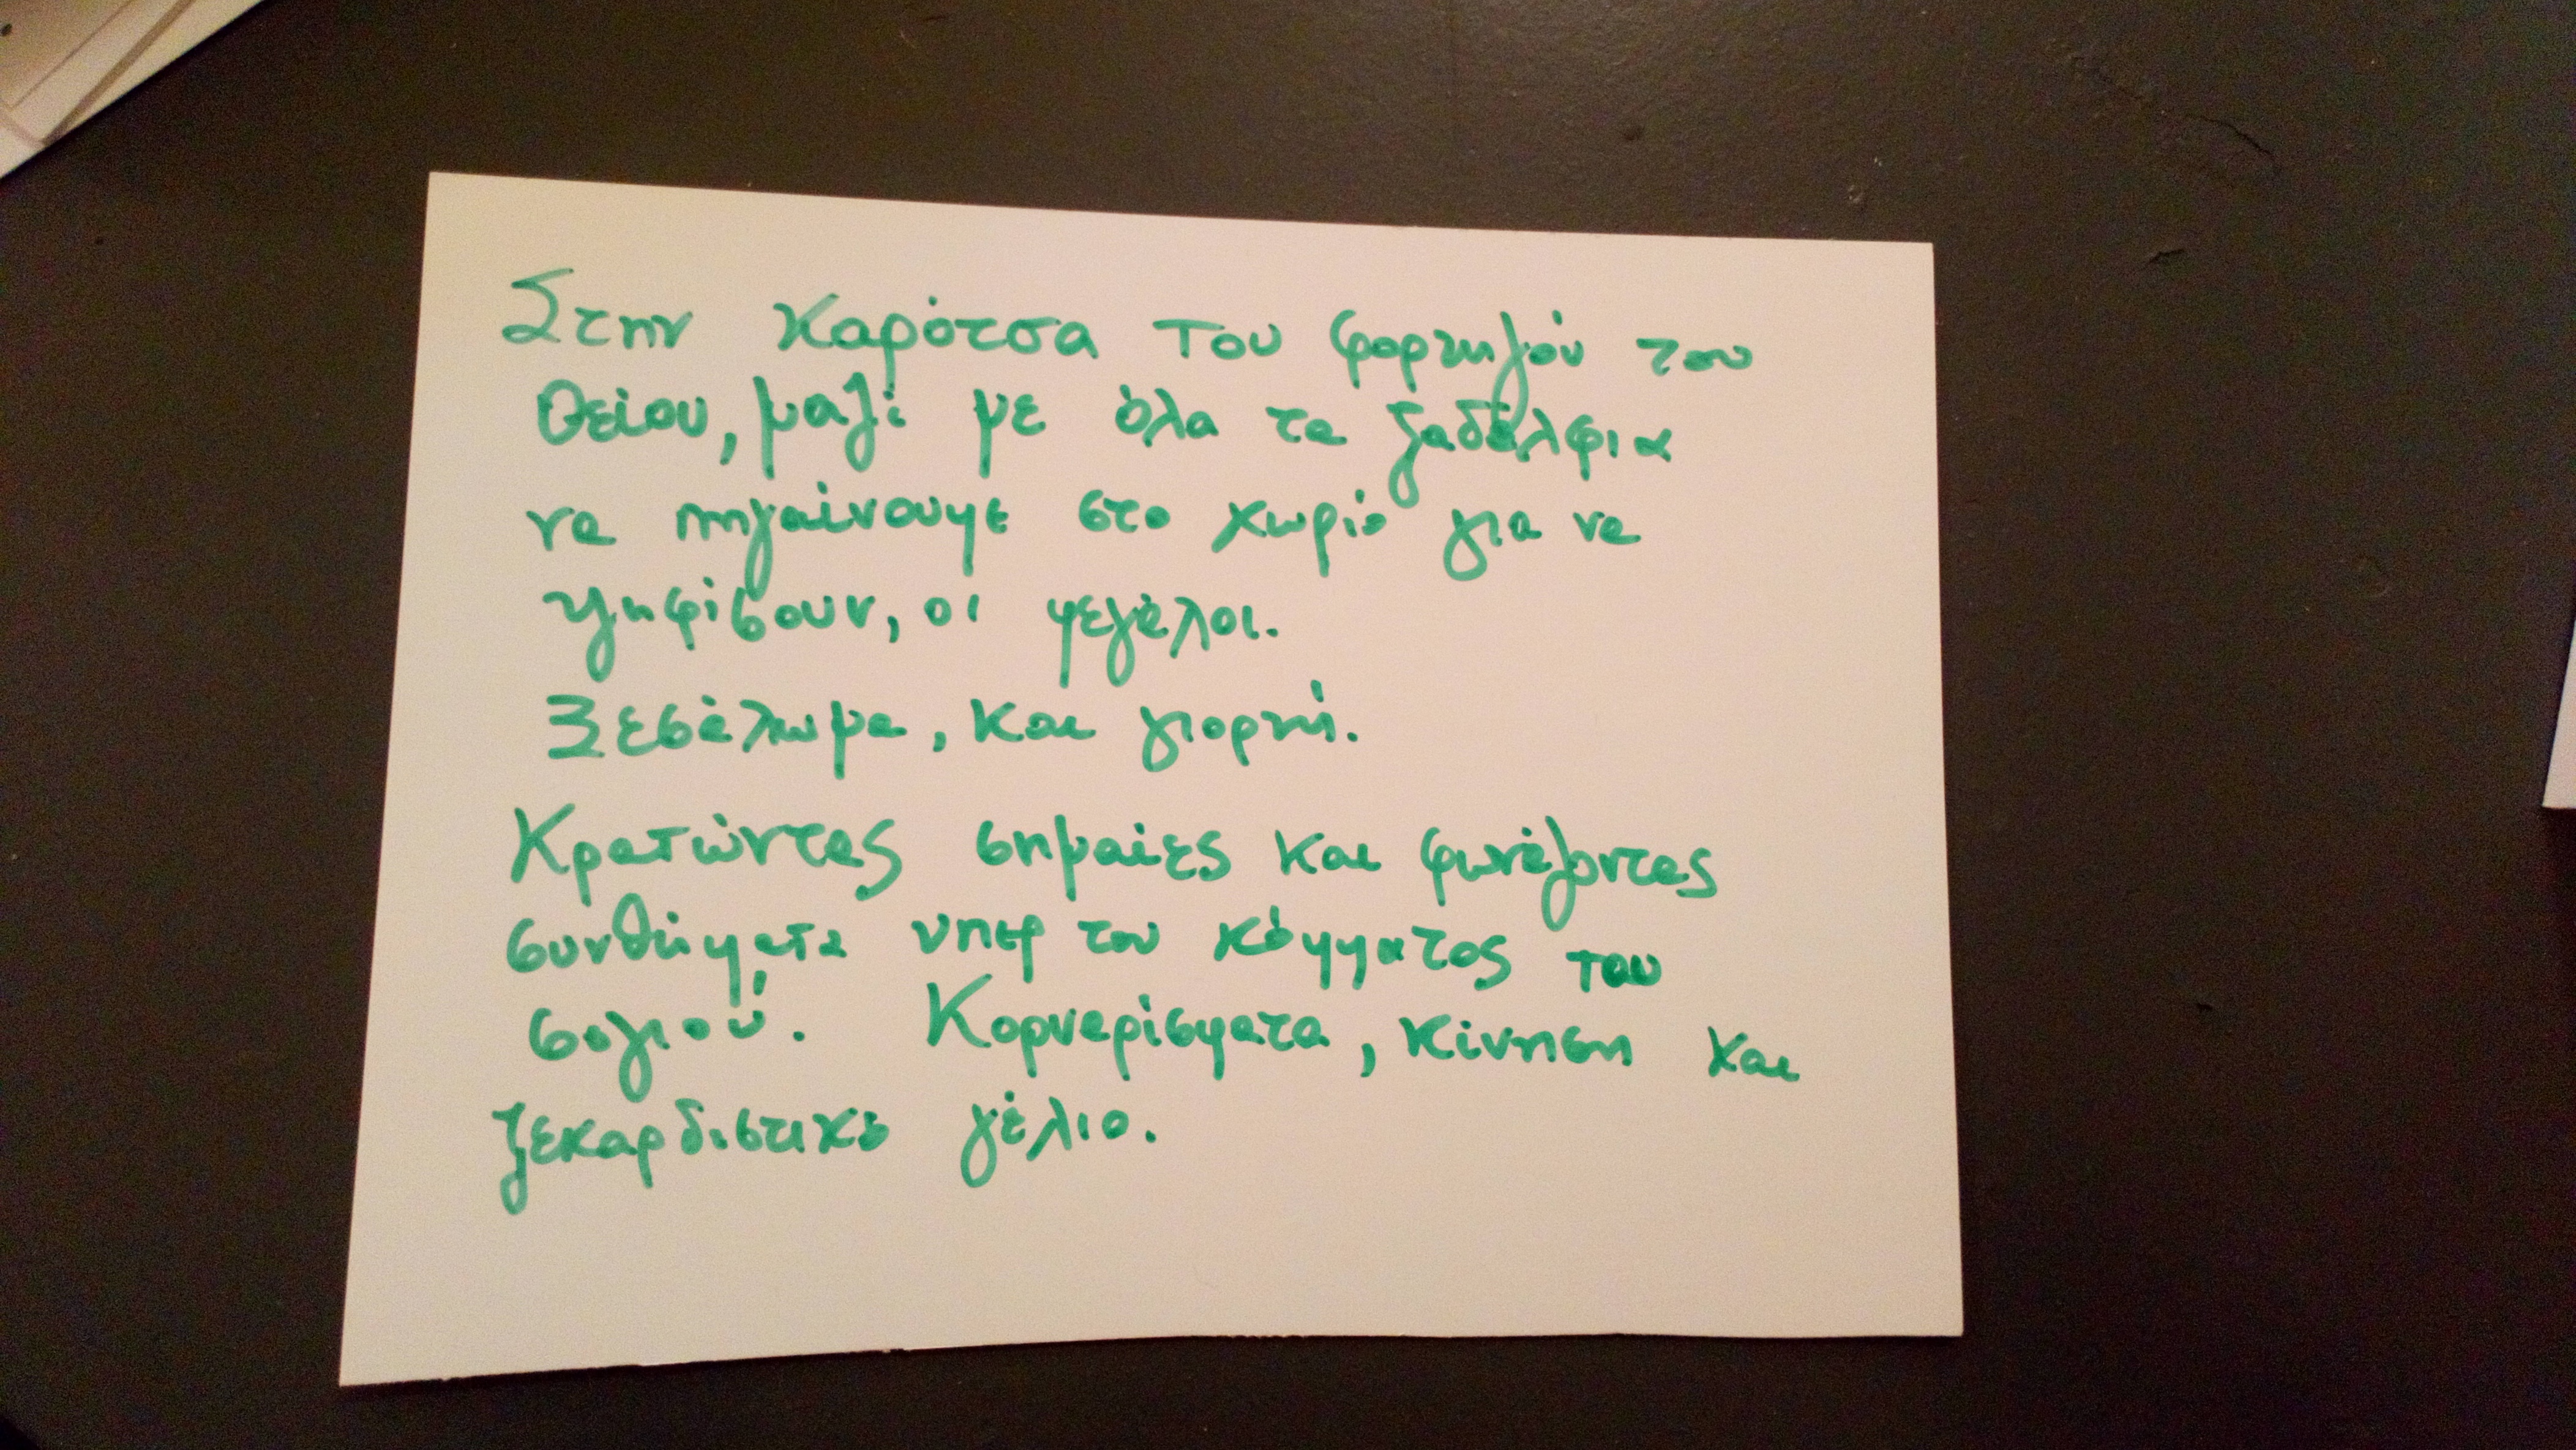 Στην καρότσα του φορτηγού του
θείου, μαζί με όλα τα ξαδέλφια
να πηγαίνουμε στο χωριό για να
ψηφίσουν, οι μεγάλοι.
Ξεσάλωμα, και γιορτή.
Κρατώντας σημαίες και φωνάζοντας
συνθήματα υπερ του κόμματος του
σογιού. Κορναρίσματα, κίνηση και
ξεκαρδιστικό γέλιο.